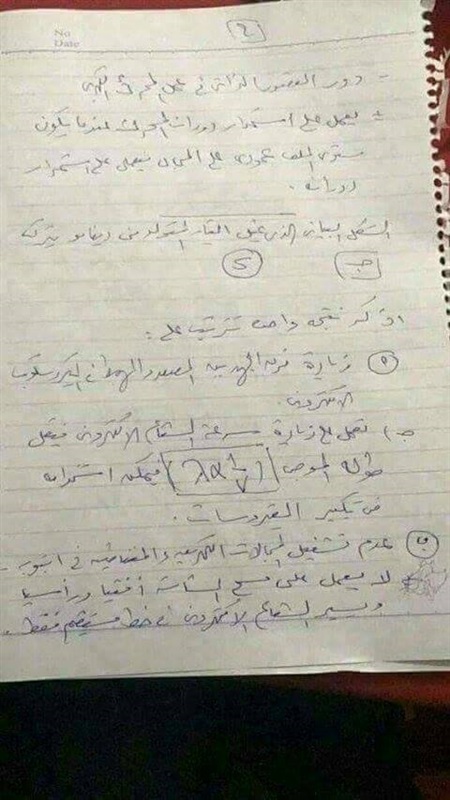 ٤
No
Date
- دور القصور الذاتى فى عمل المحرك الكهربى
يعمل على استمرار دوران المحرك عندما يكون
مستوى الملف عمودى على المجال فيعمل على استمرار
دورانه.
الشكل البيانى الذى يمثل التيار المتولد من دينامو
اذكر نتيجة واحدة تترتب على:
زيادة فرق الجهد بين المصعد والمهبط فى الميكروسكوب
الالكترونى.
تعمل على زيادة سرعة الشعاع الالكترونى فيقل
طوله الموجى (λα 1/V) فيمكن استخدامه
فى تكبير الفيروسات.
عدم تشغيل المجالات الكهربيه و المغناطيسيه فى انبوب
لا يعمل على مسح الشاشة أفقيا ورأسيا
ويسير الشعاع الالكترونى فى خط مستقيم فقط.